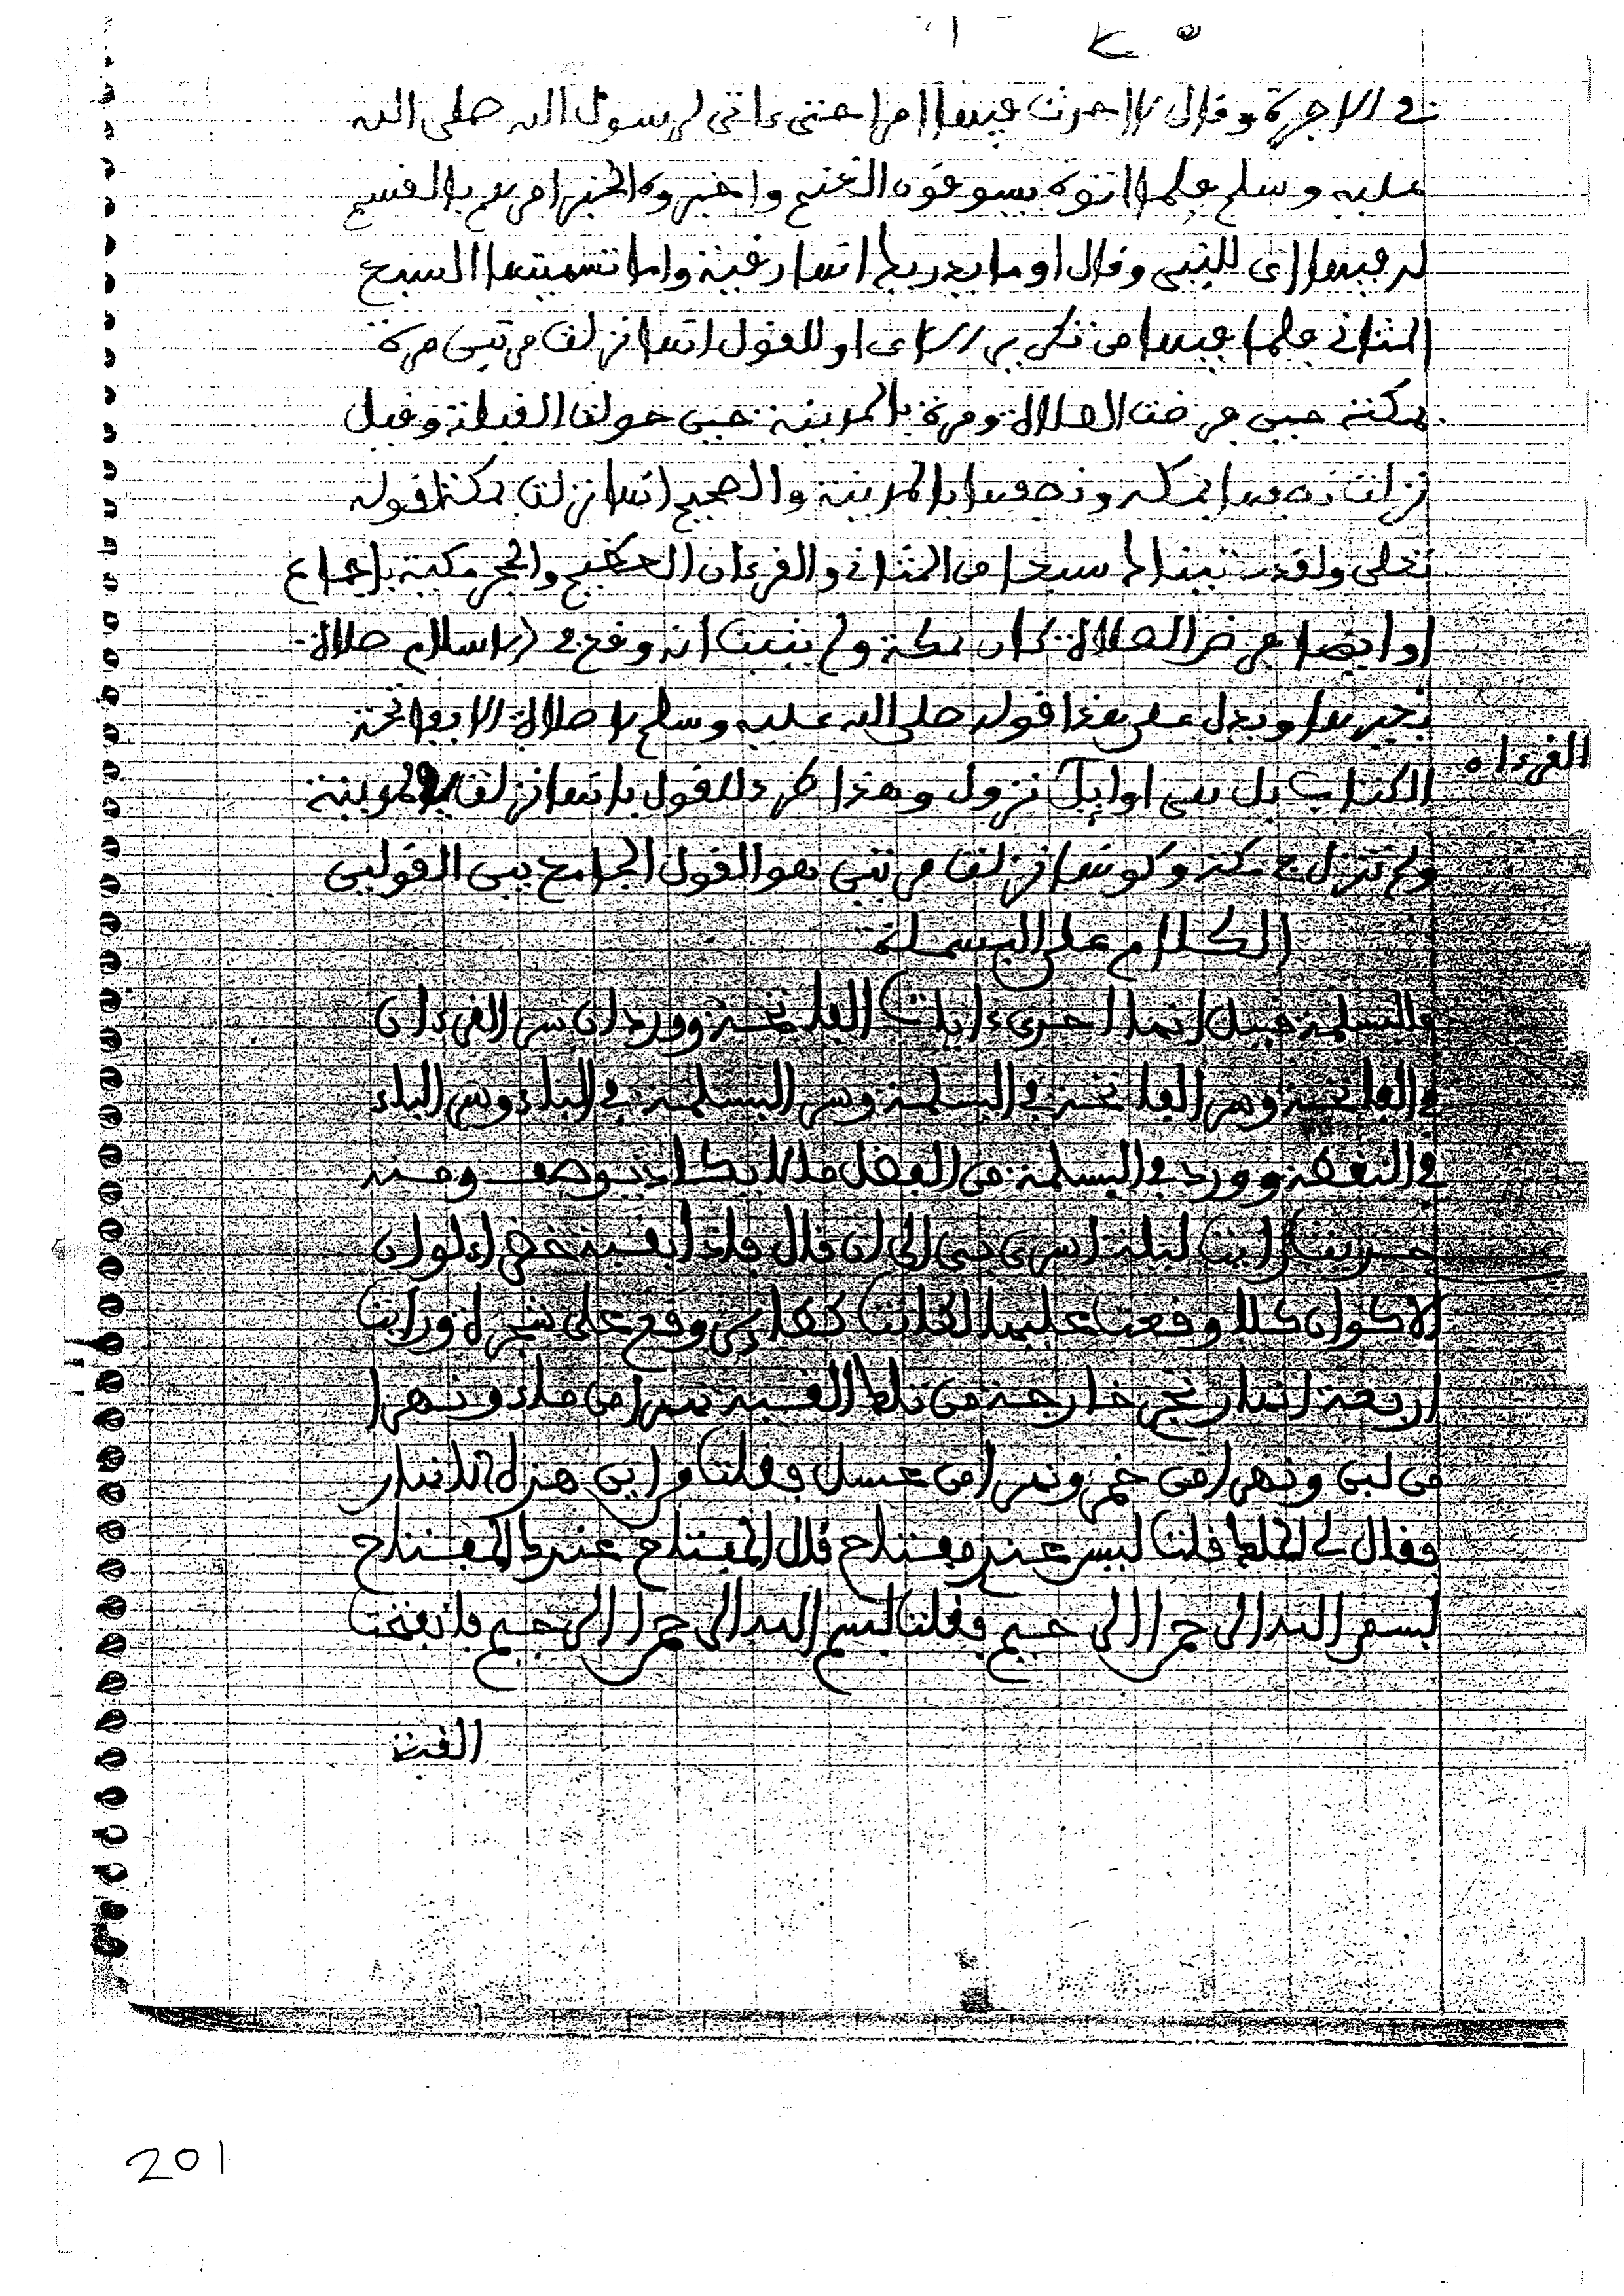 في الاجرة وقال لا احدث فيها امرا حتى ءاتي رسول الله صلى الله
عليه وسلم فلما اتوه يسوقون الغنم واخبروه الخبر امرهم بالقسم
له فيها اى للنبي وقال او ما يدريك انها رقية واما تسميتها السبع
المثاني فلما فيها من تكرير او للقول انها نزلت مرتين مرة
بمكة حين فرضت الصلاة ومرة بالمدينة حين حولت القبلة وقيل
نزلت نصفها بمكة ونصفها بالمدينة والصحيح انها نزلت بمكة لقوله
تعلى ولقد ءاتينا سبعا من المثاني والقرءان العظيم والحجر مكية باجماع
او ايضا فرض الصلاة كان بمكة ولم يثبت انه وقع في الاسلام صلاة
بغيرها ويدل على هذا قوله صلى الله عليه وسلم لا صلاة الا بفاتحة
الكتاب بل هي اوايل نزول وهذا للقول بانها نزلت بالمدينة
القرءان
ولم تنزل بمكة وكونها نزلت مرتين هو القول الجامع بين القولين
الكلام على البسملة
والبسملة قيل انها احدى ءايات الفاتحة وورد ان سر القرءان
في الفاتحة وسر الفاتحة في البسملة وسر البسملة في الباء وسر الباء
في النقطة وورد في البسملة من الفضل ما لا يكاد يوصف ومنه
حديث رايت ليلة اسري بي الى ان قال فاذا بقبة خضراء لو ان
الاكوان كلا وقعت عليها لكانت كطاير وقع على شجرة ورايت
اربعة انهار تجري خارجة من تلك القبة نهرا من ماء ونهرا
من لبن ونهرا من خمر ونهرا من عسل فقلت من اين هذه الانهار
فقال لي الملك قلت ليس عندي مفتاح قال المفتاح عندك المفتاح
بسم الله الرحمن الرحيم فقلت بسم الله الرحمن الرحيم فانفتحت
القبة
201